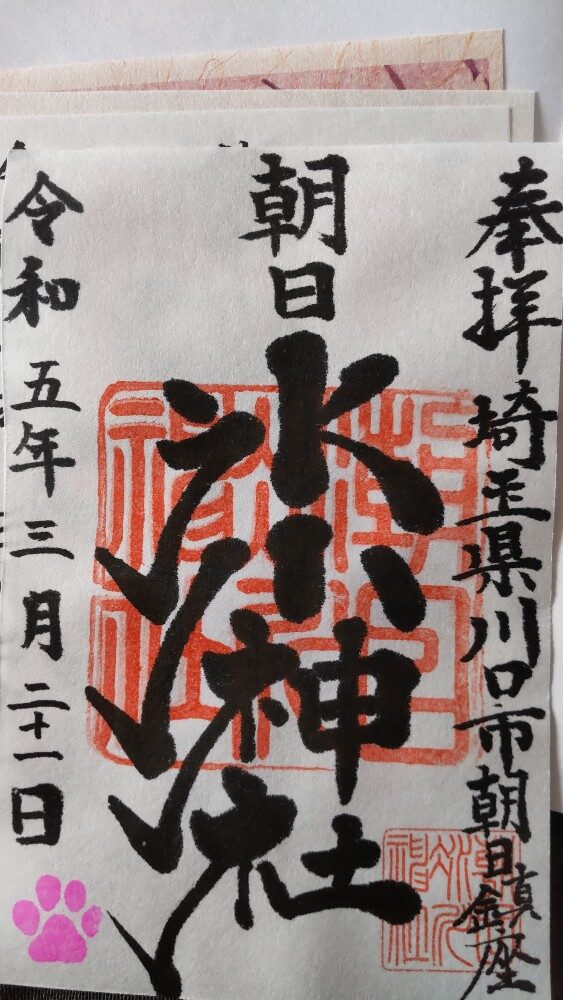 奉拝 埼玉県川口市朝日鎮座
朝日
氷川神社
令和五年三月二十一日